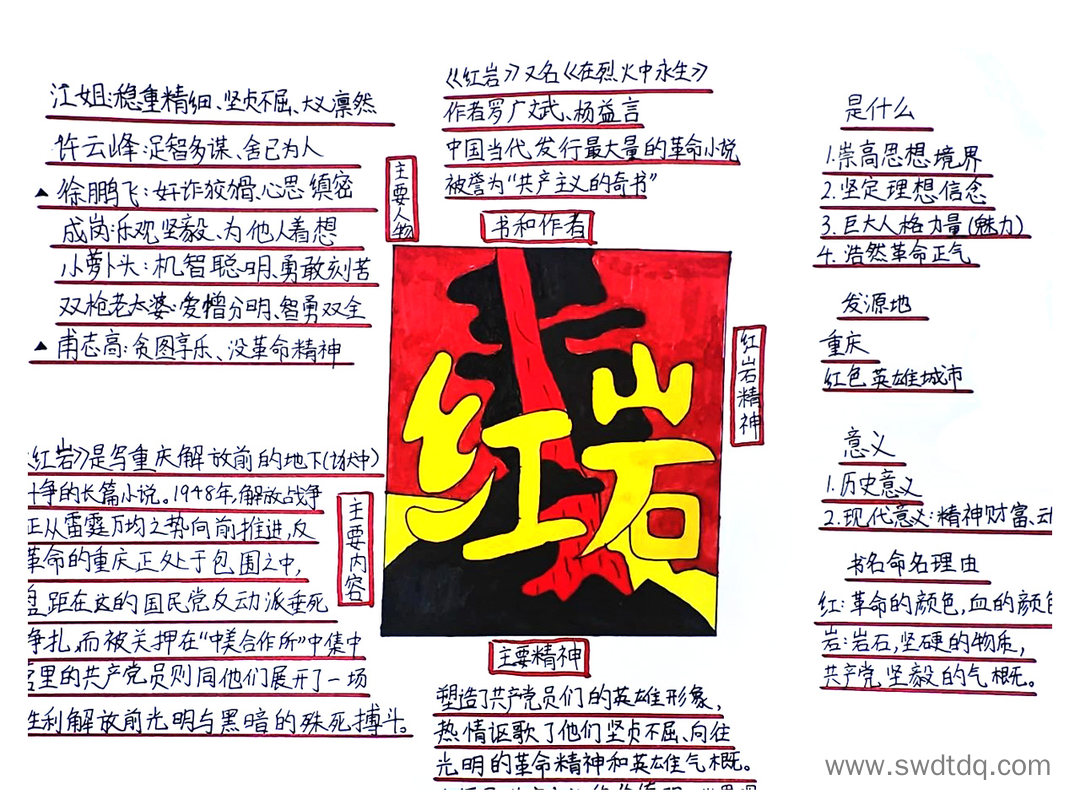 江姐:稳重精细、坚贞不屈、大义凛然
许云峰:足智多谋、舍己为人
▲徐鹏飞:奸诈狡猾、心思缜密
成岗:乐观坚毅、为他人着想
小萝卜头:机智聪明、勇敢刻苦
双枪老太婆:爱憎分明、智勇双全
▲甫志高:贪图享乐、没革命精神
主要人物
《红岩》又名《在烈火中永生》
作者罗广斌、杨益言
中国当代发行最大量的革命小说
被誉为“共产主义的奇书”
书和作者
红岩
红岩精神
是什么
1.崇高思想境界
2.坚定理想信念
3.巨大人格力量(魅力)
4.浩然革命正气
发源地
重庆
红色英雄城市
意义
1.历史意义
2.现代意义:精神财富、动
书名命名理由
红:革命的颜色,血的颜色
岩:岩石,坚硬的物质,
共产党坚毅的气概。
主要内容
红岩》是写重庆解放前的地下(狱中)
斗争的长篇小说。1948年,解放战争
正从雷霆万均之势向前推进,反
革命的重庆正处于包围之中,
盘距在这的国民党反动派垂死
争扎,而被关押在“中美合作所”中集中
营里的共产党员则同他们展开了一场
胜利解放前光明与黑暗的殊死搏斗。
主要精神
塑造了共产党员们的英雄形象,
热情讴歌了他们坚贞不屈、向往
光明的革命精神和英雄气概。
www.swdtdq.com